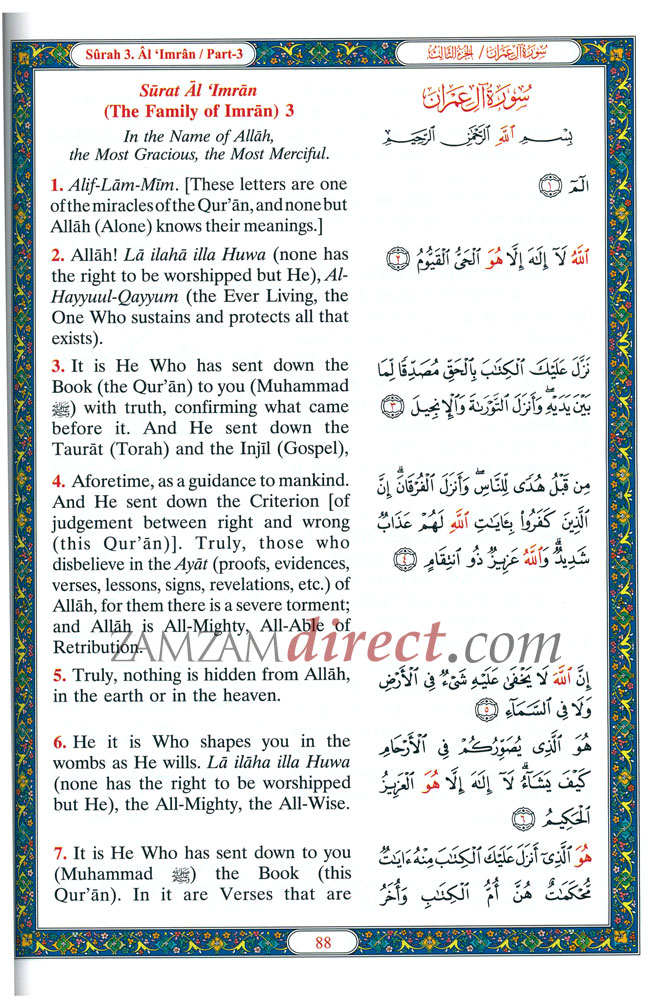 Sûrah 3. Âl ‘Imrân / Part-3
سورة آل عمران / الجزء الثالث
Sūrat Āl ‘Imrān
(The Family of Imrān) 3
In the Name of Allāh,
the Most Gracious, the Most Merciful.
1. Alif-Lām-Mīm. [These letters are one
of the miracles of the Qur’ān, and none but
Allāh (Alone) knows their meanings.]
2. Allāh! Lā ilahā illa Huwa (none has
the right to be worshipped but He), Al-
Hayyuul-Qayyum (the Ever Living, the
One Who sustains and protects all that
exists).
3. It is He Who has sent down the
Book (the Qur’ān) to you (Muhammad
ﷺ) with truth, confirming what came
before it. And He sent down the
Taurāt (Torah) and the Injīl (Gospel),
4. Aforetime, as a guidance to mankind.
And He sent down the Criterion [of
judgement between right and wrong
(this Qur’ān)]. Truly, those who
disbelieve in the Ayāt (proofs, evidences,
verses, lessons, signs, revelations, etc.) of
Allāh, for them there is a severe torment;
and Allāh is All-Mighty, All-Able of
Retribution.
5. Truly, nothing is hidden from Allāh,
in the earth or in the heaven.
6. He it is Who shapes you in the
wombs as He wills. Lā ilāha illa Huwa
(none has the right to be worshipped
but He), the All-Mighty, the All-Wise.
7. It is He Who has sent down to you
(Muhammad ﷺ) the Book (this
Qur’ān). In it are Verses that are
سُورَةُ آلِ عِمْرَانَ
بِسْمِ اللَّهِ الرَّحْمَٰنِ الرَّحِيمِ
الٓمٓ ١
اللَّهُ لَآ إِلَٰهَ إِلَّا هُوَ الْحَيُّ الْقَيُّومُ ٢
نَزَّلَ عَلَيْكَ الْكِتَٰبَ بِالْحَقِّ مُصَدِّقًا لِّمَا
بَيْنَ يَدَيْهِ ۖ وَأَنزَلَ التَّوْرَىٰةَ وَالْإِنجِيلَ ٣
مِن قَبْلُ هُدًى لِّلنَّاسِ ۖ وَأَنزَلَ الْفُرْقَانَ ۗ إِنَّ
الَّذِينَ كَفَرُوا۟ بِـَٔايَٰتِ اللَّهِ لَهُمْ عَذَابٌ
شَدِيدٌ ۗ وَاللَّهُ عَزِيزٌ ذُو انتِقَامٍ ٤
إِنَّ اللَّهَ لَا يَخْفَىٰ عَلَيْهِ شَىْءٌ فِى الْأَرْضِ
وَلَا فِى السَّمَآءِ ٥
هُوَ الَّذِى يُصَوِّرُكُمْ فِى الْأَرْحَامِ
كَيْفَ يَشَآءُ ۚ لَآ إِلَٰهَ إِلَّا هُوَ الْعَزِيزُ
الْحَكِيمُ ٦
هُوَ الَّذِىٓ أَنزَلَ عَلَيْكَ الْكِتَٰبَ مِنْهُ ءَايَٰتٌ
مُّحْكَمَٰتٌ هُنَّ أُمُّ الْكِتَٰبِ وَأُخَرُ
ZAMZAMdirect.com
88